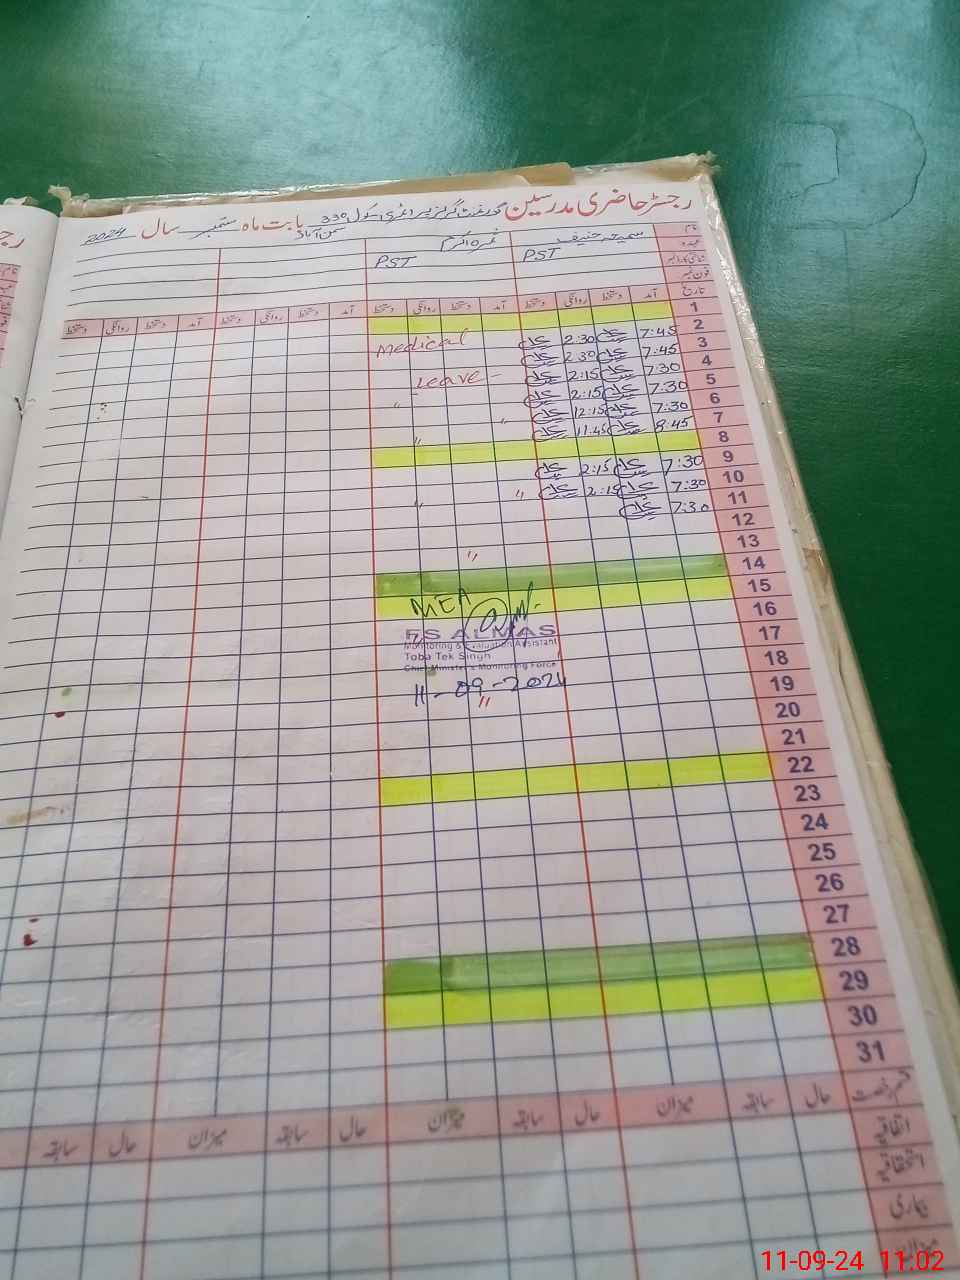 رجسٹر حاضری مدرسین گورنمنٹ گرلز پرائمری سکول 330 بابت ماہ ستمبر سال 2024
نام سمیعہ حنیف
عہدہ PST PST
شناختی کارڈ نمبر
فون نمبر
تاریخ آمد دستخط روانگی دستخط آمد دستخط روانگی دستخط آمد دستخط روانگی دستخط آمد دستخط روانگی دستخط
1
2 7:45 2:30 Medical
3 7:45 2:30
4 7:30 2:15 Leave -
5 7:30 2:15 "
6 7:30 12:15 "
7 8:45 11:45 "
8
9 7:30 2:15
10 7:30 2:15 " "
11 7:30
12
13 "
14
15
16 MEA
17 F.S ALMAS
Monitoring & Evaluation Assistant
18 Toba Tek Singh
Chief Minister's Monitoring Force
19 11-09-2024
"
20
21
22
23
24
25
26
27
28
29
30
31
قسم رخصت حال سابقہ میزان حال سابقہ میزان حال سابقہ میزان حال سابقہ
اتفاقیہ
استحقاقیہ
بیماری
میزان
11-09-24 11:02